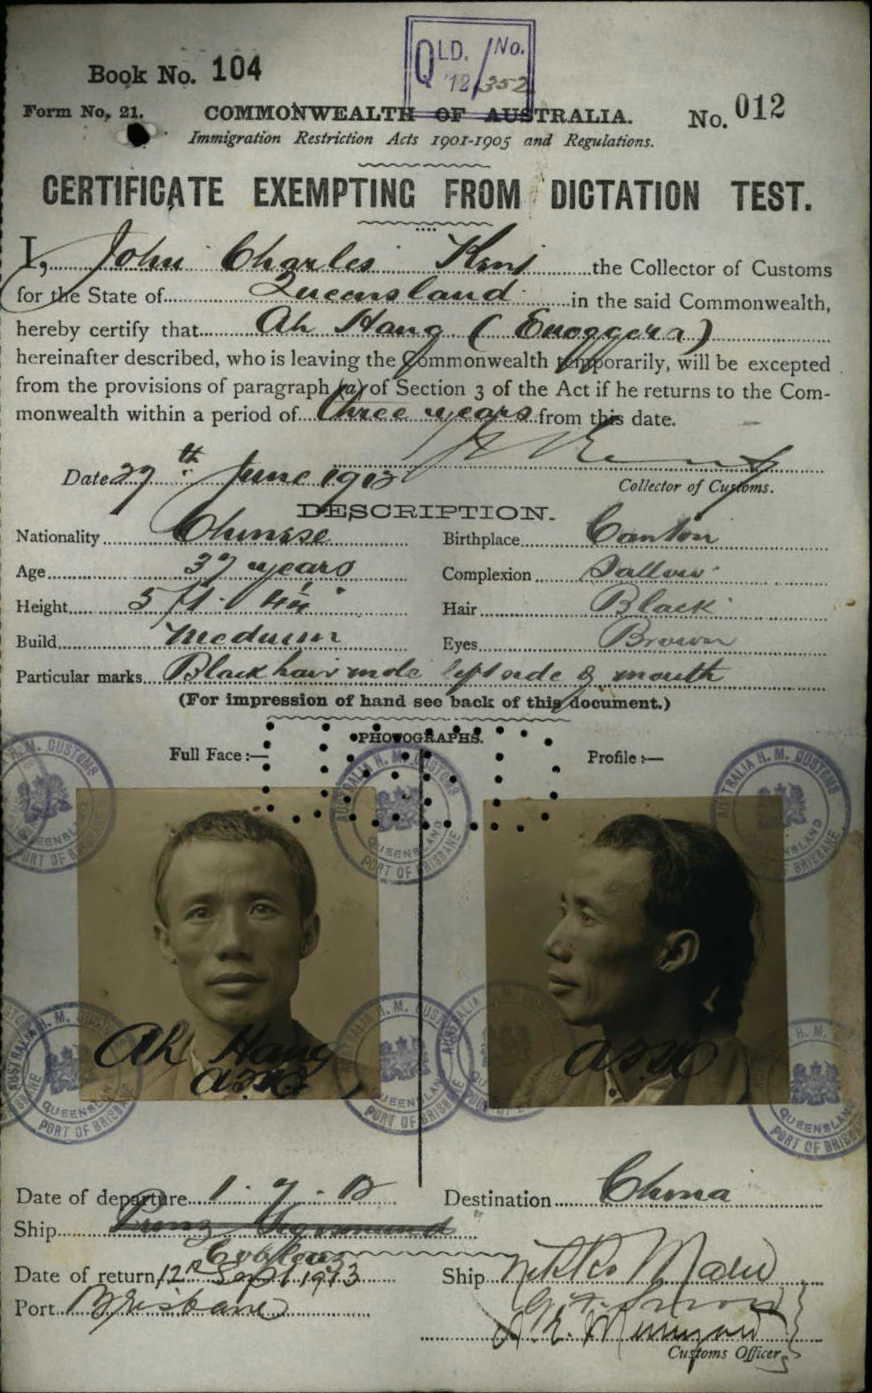 QLD. No.
'12/352
Book No. 104
Form No. 21.
COMMONWEALTH OF AUSTRALIA.
No. 012
Immigration Restriction Acts 1901-1905 and Regulations.
CERTIFICATE EXEMPTING FROM DICTATION TEST.
I, John Charles Kent the Collector of Customs
for the State of Queensland in the said Commonwealth,
hereby certify that Ah Hang (Enoggera)
hereinafter described, who is leaving the Commonwealth temporarily, will be excepted
from the provisions of paragraph (a) of Section 3 of the Act if he returns to the Com-
monwealth within a period of three years from this date.
Date 27th June 1912
Collector of Customs.
DESCRIPTION.
Nationality Chinese
Birthplace Canton
Age 37 years
Complexion Sallow
Height 5 ft
Hair Black
Build Medium
Eyes Brown
Particular marks Black hair mole left side of mouth
(For impression of hand see back of this document.)
PHOTOGRAPHS.
Full Face :—
Profile :—
AUSTRALIA H. M. CUSTOMS
QUEENSLAND
PORT OF BRISBANE
Ah Hang
Date of departure 1. 7. 12
Destination China
Ship Prinz Sigismund
Date of return 12th Sept 1913
Ship Nikko Maru
Port Brisbane
Customs Officer.